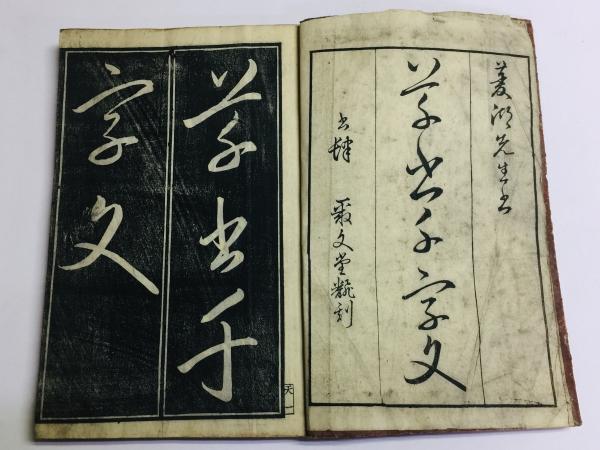 菱湖先生書
草書千字文
書肆 文堂 刻
草書千
字文
天一